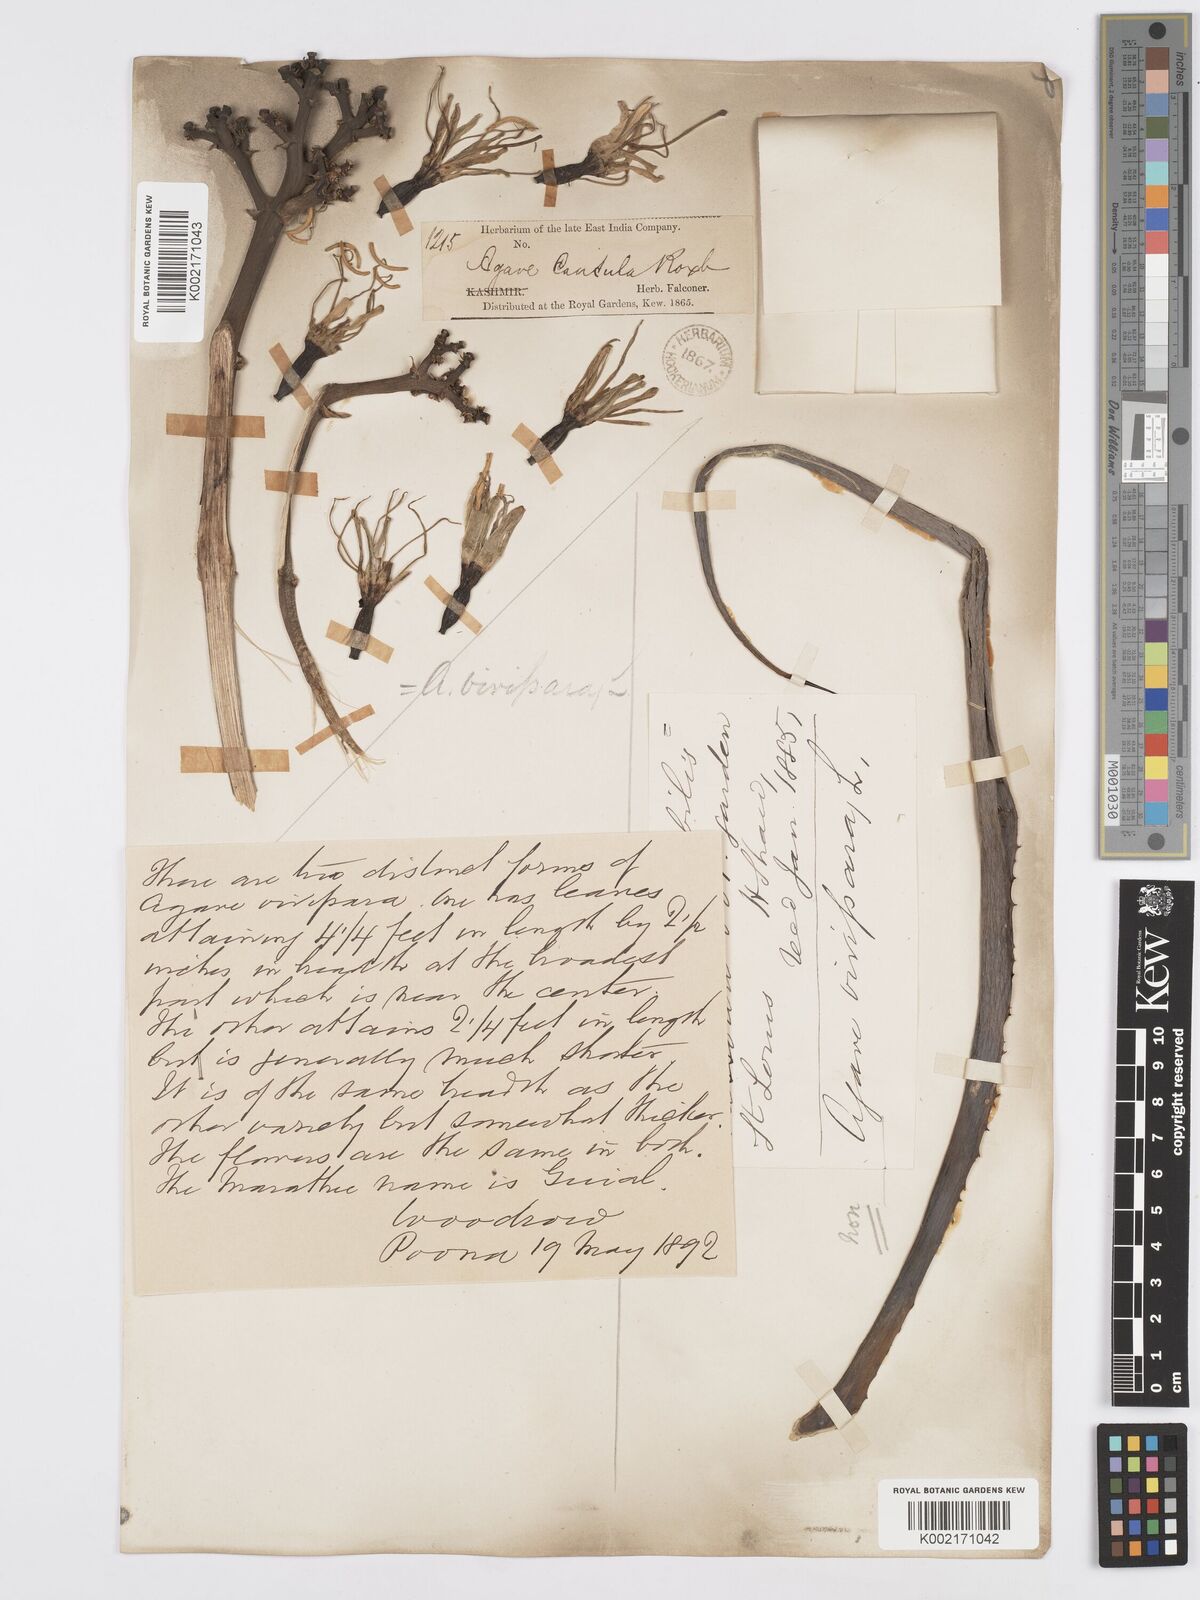 ROYAL BOTANIC GARDENS KEW
K002171043
Herbarium of the late East India Company.
1215 No.
Agave Cantula Roxb
KASHMIR. Herb. Falconer.
Distributed at the Royal Gardens, Kew. 1865.
HERBARIUM
1867.
HOOKERIANUM
= A. vivipara, L.
There are two distinct forms of
Agave vivipara. One has leaves
attaining 4 1/4 feet in length by 2 1/2
inches in breadth at the broadest
part which is near the center.
The other attains 2 1/4 feet in length
but is generally much shorter.
It is of the same breadth as the
other variety but somewhat thicker.
The flowers are the same in both.
The Marathee name is
Woodrow
Poona 19 May 1892
garden
St Louis H Shaw,
Recd Jan. 1885,
Agave vivipara, L,
non
ROYAL BOTANIC GARDENS KEW
K002171042
inches
Density
Don Williams
M001030
Royal Botanic Gardens
Kew
copyright reserved
0 1 2 3 4 5 6 7 8 9 10
cm